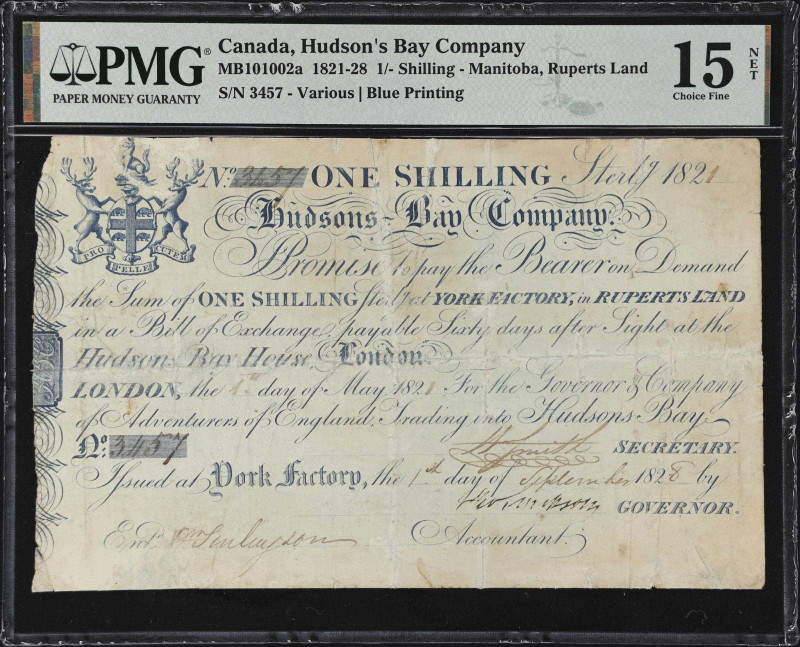 PMG®
PAPER MONEY GUARANTY
Canada, Hudson's Bay Company
MB101002a 1821-28 1/- Shilling - Manitoba, Ruperts Land
S/N 3457 - Various | Blue Printing
15
NET
Choice Fine
No. 3457 ONE SHILLING Sterlg 1821
Hudsons Bay Company.
Promise to pay the Bearer on Demand
the Sum of ONE SHILLING Sterlg at YORK FACTORY, in RUPERT'S LAND
in a Bill of Exchange payable Sixty days after Sight at the
Hudsons Bay House London.
LONDON, the 1st day of May 1821 For the Governor & Company
of Adventurers of England, Trading into Hudsons Bay
No. 3457
W Smith SECRETARY.
Issued at York Factory, the 1st day of September 1828 by
GOVERNOR.
Entd. Accountant.
PRO PELLE CUTEM